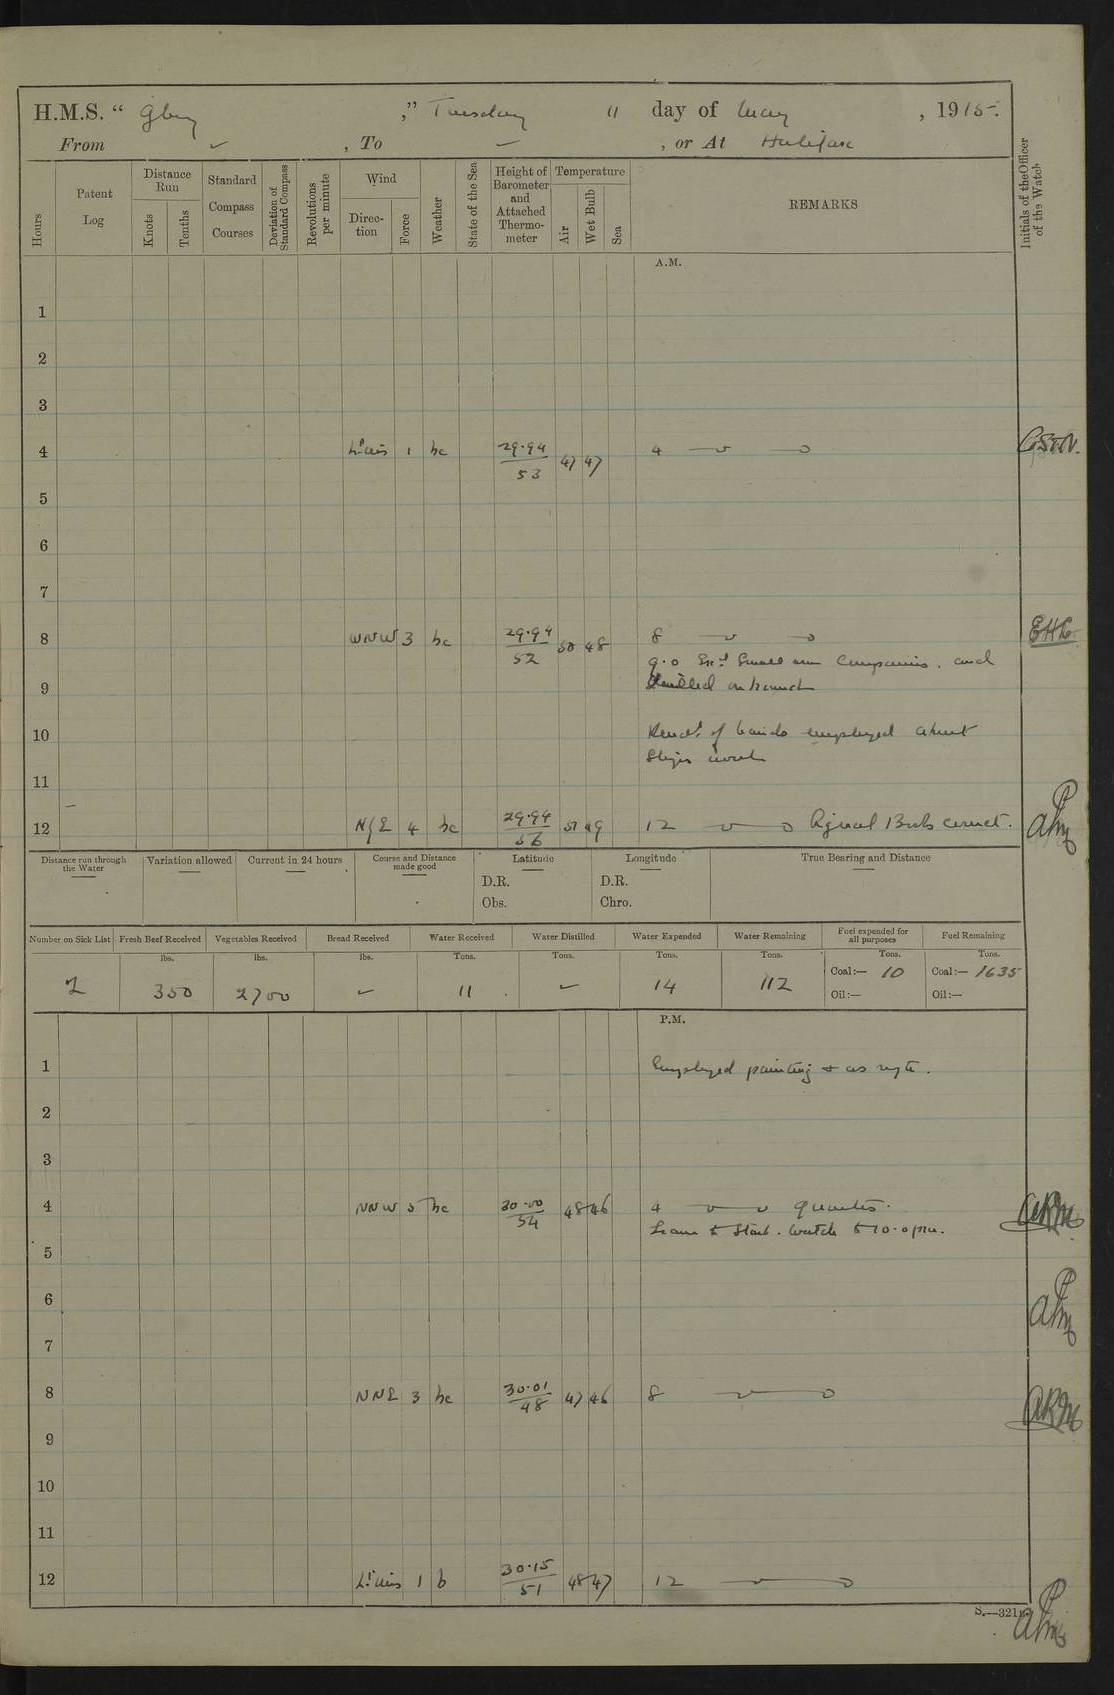 H.M.S. “ Glory ,” Tuesday 11 day of May , 1915.
From ✓ , To — , or At Halifax
Hours
Patent Log
Distance Run
Knots
Tenths
Standard Compass Courses
Deviation of Standard Compass
Revolutions per minute
Wind
Direction
Force
Weather
State of the Sea
Height of Barometer and Attached Thermometer
Temperature
Air
Wet Bulb
Sea
REMARKS
Initials of the Officer of the Watch
A.M.
1
2
3
4 Lt airs 1 bc 29.94 / 53 47 47 4
5
6
7
8 WNW 3 bc 29.94 / 52 50 48 8
9.0 Small arm Companies. and
9 drilled on board
10 Remdr of hands employed about
Ships work
11
12 4 bc 29.94 / 56 51 49 12
Distance run through the Water
Variation allowed
Current in 24 hours
Course and Distance made good
Latitude
D.R.
Obs.
Longitude
D.R.
Chro.
True Bearing and Distance
Number on Sick List Fresh Beef Received Vegetables Received Bread Received Water Received Water Distilled Water Expended Water Remaining Fuel expended for all purposes Fuel Remaining
lbs. lbs. lbs. Tons. Tons. Tons. Tons. Tons. Tons.
2 350 2700 ✓ 11 ✓ 14 112 Coal:— 10 Coal:— 1635
Oil:— Oil:—
P.M.
1 Employed painting & as reqte.
2
3
4 NNW 5 bc 30.00 / 54 48 46 4 quarters.
Leave to Starb. Watch to 10.0 pm.
5
6
7
8 NNE 3 bc 30.01 / 48 47 46 8
9
10
11
12 Lt airs 1 b 30.15 / 51 48 47 12
S.—321